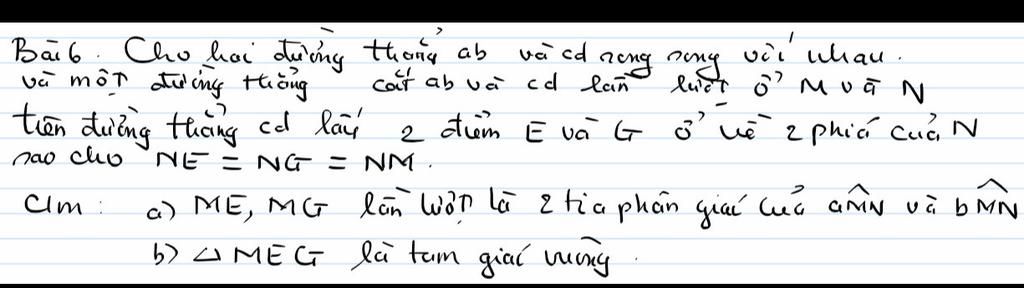 Bài 6. Cho hai đường thẳng ab và cd song song với nhau.
và một đường thẳng cắt ab và cd lần lượt ở M và N
trên đường thẳng cd lấy 2 điểm E và G ở về 2 phía của N
sao cho NE = NG = NM.
Cm: a) ME, MG lần lượt là 2 tia phân giác của aMN và bMN
b) △ MEG là tam giác vuông.